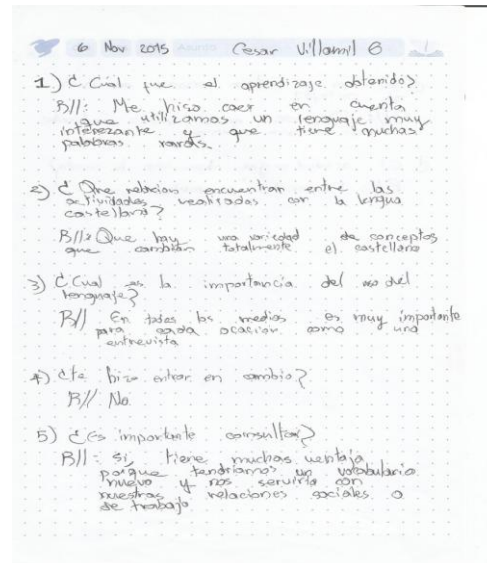 6 Nov 2015 Asunto Cesar Villamil 6
1) ¿Cúal fue el aprendizaje obtenido?
R//: Me hiso caer en cuenta
que utilizamos un lenguaje muy
interezante y que tiene muchas
palabras raras.
2) ¿Que relacion encuentran entre las
actividades realizadas con la lengua
castellana?
R//: Que hay una variedad de conceptos
que cambian totalmente el castellano
3) ¿Cual es la importancia del uso del
lenguaje?
R// En todos los medios es muy importante
para cada ocacion como una
entrevista
4) ¿te hizo entrar en cambio?
R// No.
5) ¿Es importante consultar?
R//: si, tiene muchas ventaja
porque tendriamos un votabulario
nuevo y nos serviria con
nuestras relaciones sociales o
de trabajo